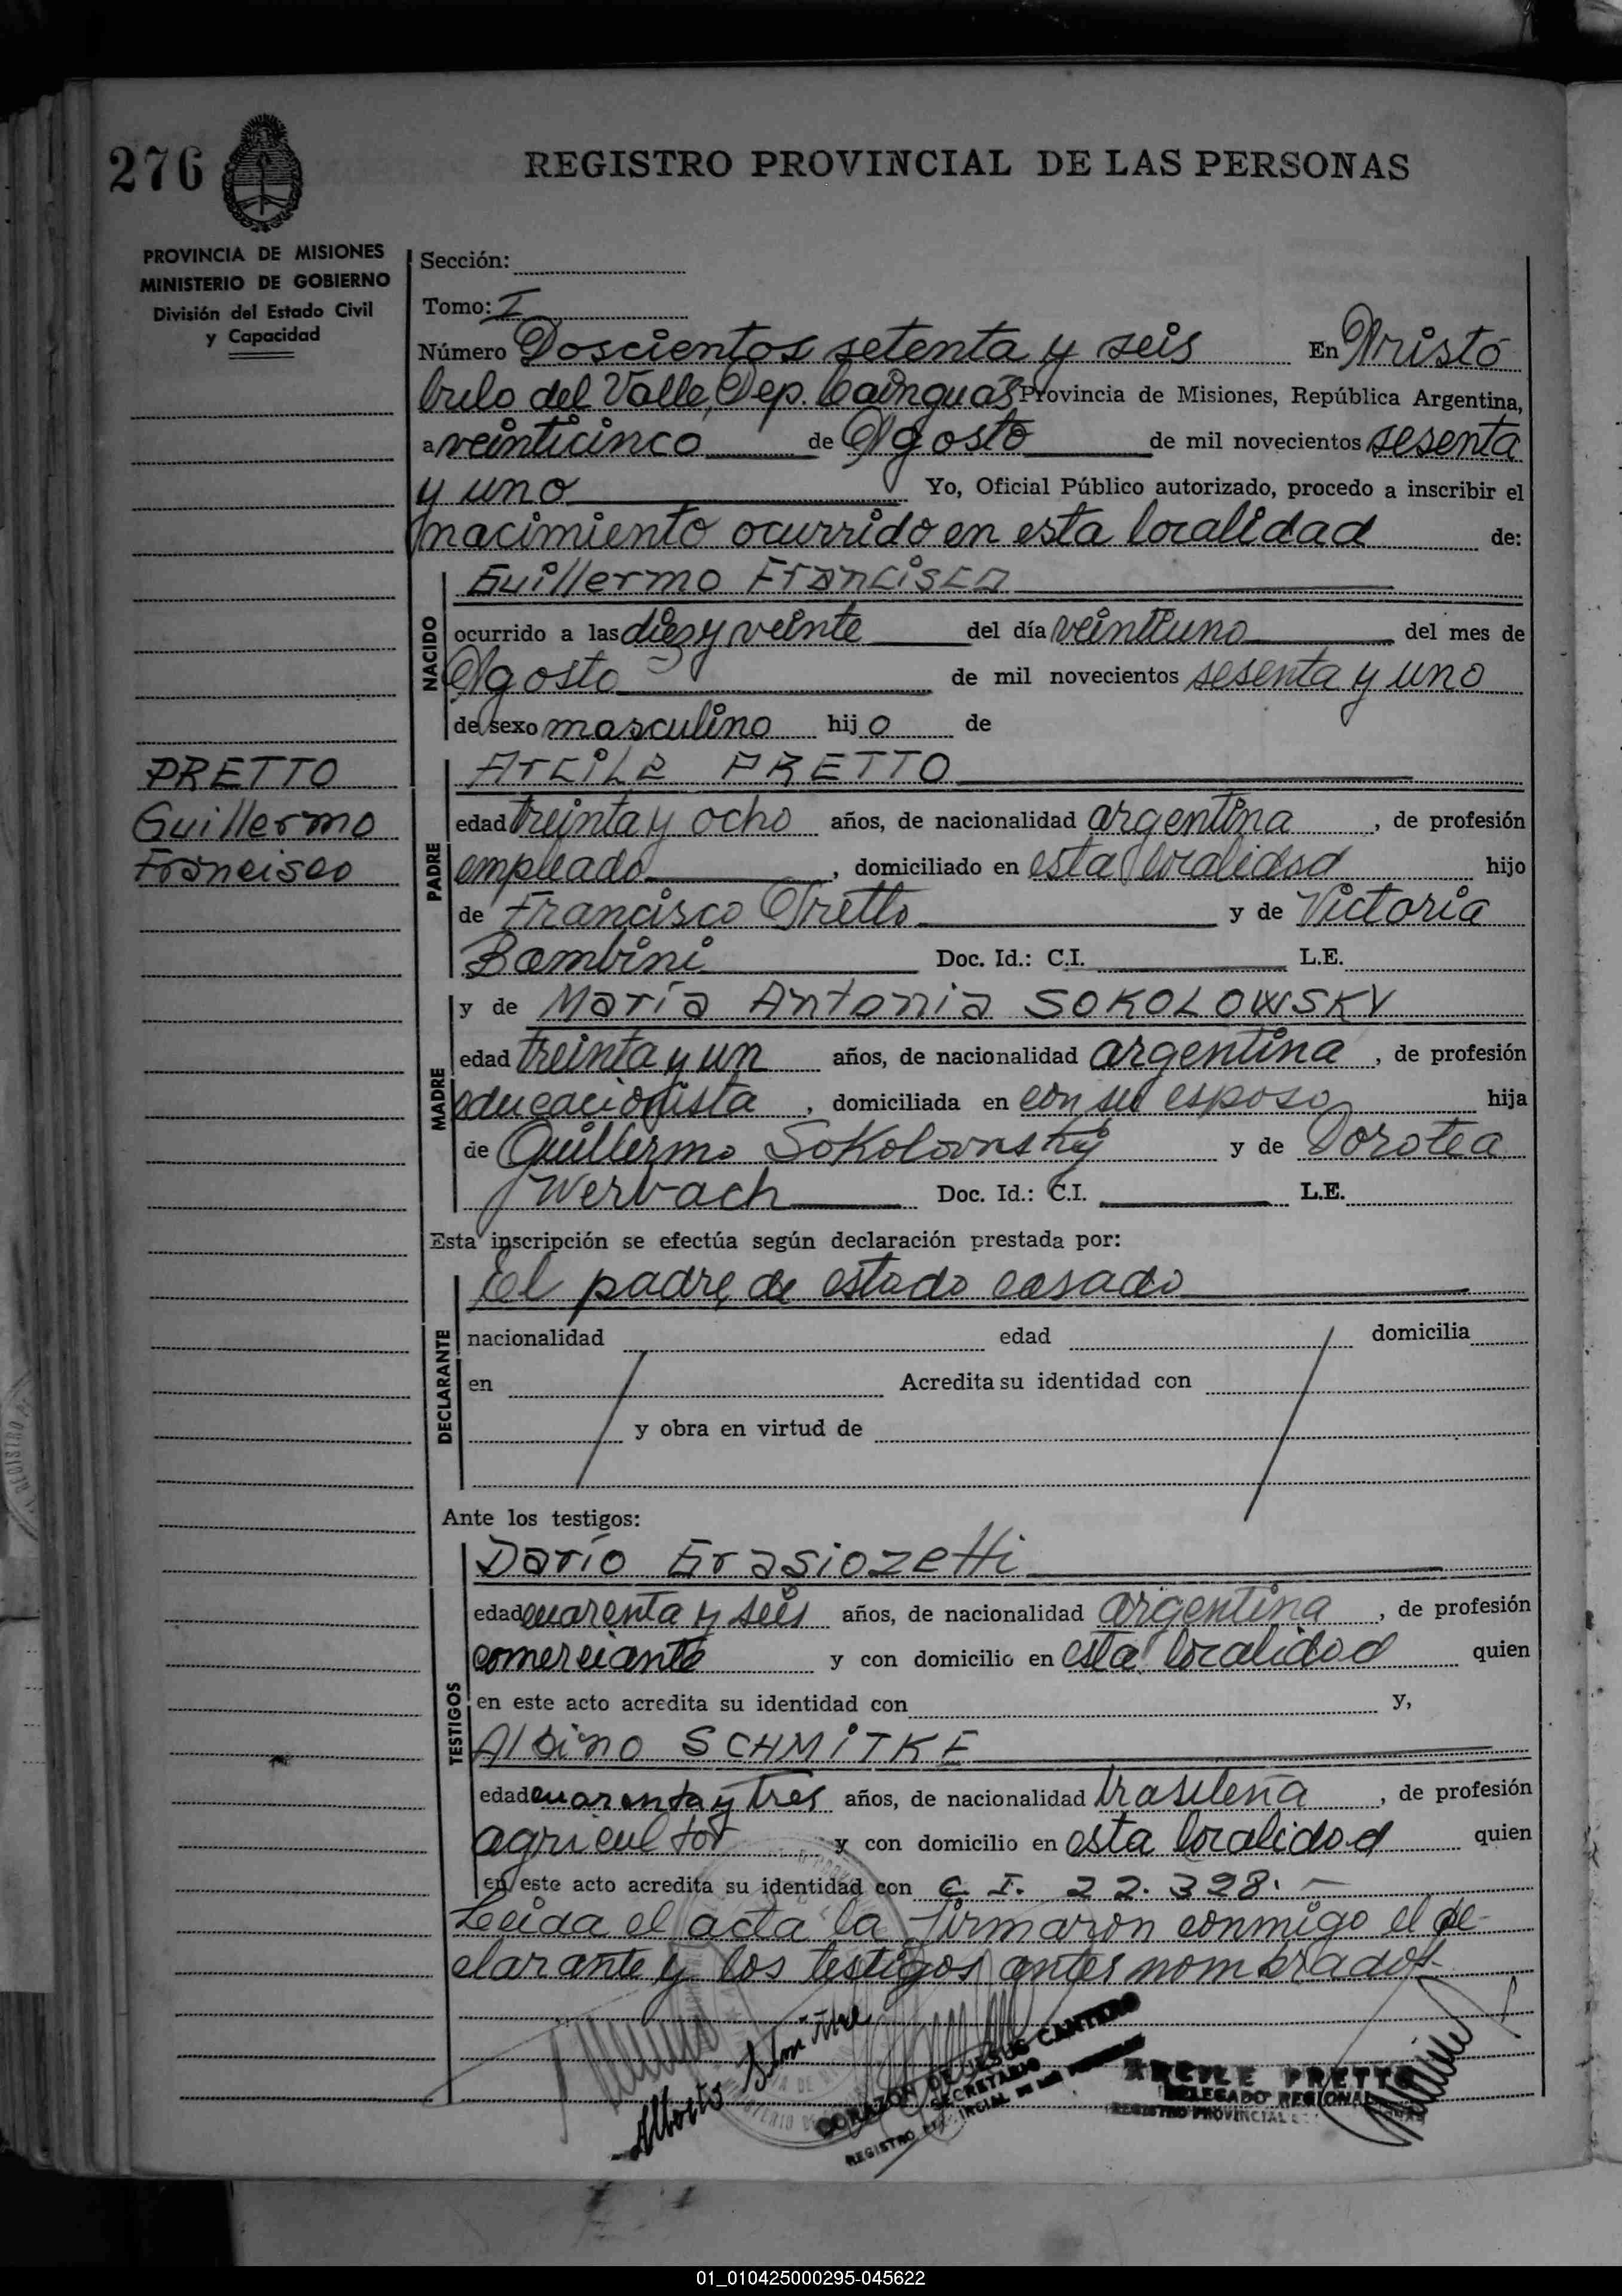 276
REGISTRO PROVINCIAL DE LAS PERSONAS
PROVINCIA DE MISIONES
MINISTERIO DE GOBIERNO
División del Estado Civil
y Capacidad
Sección:
Tomo: I
Número Doscientos setenta y seis En Aristó
bulo del Valle, Dep. Cainguas Provincia de Misiones, República Argentina,
a veinticinco de Agosto de mil novecientos sesenta
y uno Yo, Oficial Público autorizado, procedo a inscribir el
nacimiento ocurrido en esta localidad de:
NACIDO
Guillermo Francisco
ocurrido a las diez y veinte del día veintiuno del mes de
Agosto de mil novecientos sesenta y uno
de sexo masculino hijo de
PRETTO
Guillermo
Francisco
PADRE
Arcile PRETTO
edad treinta y ocho años, de nacionalidad argentina, de profesión
empleado, domiciliado en esta localidad hijo
de Francisco Pretto y de Victoria
Bambini Doc. Id.: C.I. L.E.
MADRE
y de María Antonia SOKOLOWSKY
edad treinta y un años, de nacionalidad argentina, de profesión
educacionista, domiciliada en con su esposo hija
de Guillermo Sokolowsky y de Dorotea
Werbach Doc. Id.: C.I. L.E.
Esta inscripción se efectúa según declaración prestada por:
DECLARANTE
El padre, de estado casado
nacionalidad edad domicilia
en Acredita su identidad con
y obra en virtud de
Ante los testigos:
TESTIGOS
Darío Grasiozetti
edad cuarenta y seis años, de nacionalidad argentina, de profesión
comerciante y con domicilio en esta localidad quien
en este acto acredita su identidad con y,
Albino SCHMITKE
edad cuarenta y tres años, de nacionalidad brasileña, de profesión
agricultor y con domicilio en esta localidad quien
en este acto acredita su identidad con C. I. 22.328.-
Leida el acta la firmaron conmigo el de-
clarante y los testigos antes nombrados.-
CORAZON DE JESUS CANTERO
SECRETARIO
REGISTRO PROVINCIAL DE LAS PERSONAS
ARCILE PRETTO
DELEGADO REGIONAL
REGISTRO PROVINCIAL
01_010425000295-045622